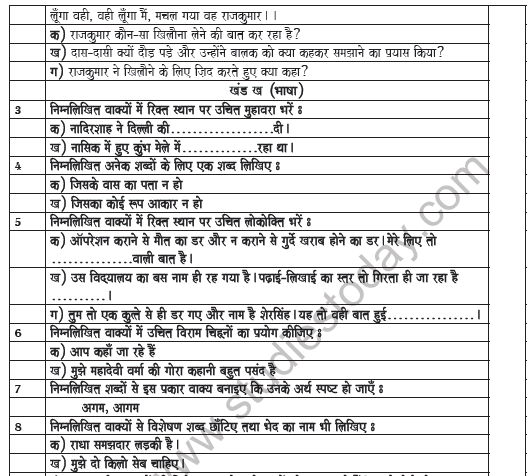 लूँगा वही, वही लूँगा मैं, मचल गया वह राजकुमार।।
क) राजकुमार कौन-सा खिलौना लेने की बात कर रहा है?
ख) दास-दासी क्यों दौड़ पड़े और उन्होंने बालक को क्या कहकर समझाने का प्रयास किया?
ग) राजकुमार ने खिलौने के लिए ज़िद करते हुए क्या कहा?
खंड ख (भाषा)
3 निम्नलिखित वाक्यों में रिक्त स्थान पर उचित मुहावरा भरें ः
क) नादिरशाह ने दिल्ली की...................दी।
ख) नासिक में हुए कुंभ मेले में..............रहा था।
4 निम्नलिखित अनेक शब्दों के लिए एक शब्द लिखिए ः
क) जिसके वास का पता न हो
ख) जिसका कोई रूप आकार न हो
5 निम्नलिखित वाक्यों में रिक्त स्थान पर उचित लोकोक्ति भरें ः
क) ऑपरेशन कराने से मौत का डर और न कराने से गुर्दे खराब होने का डर। मेरे लिए तो
...............वाली बात है।
ख) उस विद्यालय का बस नाम ही रह गया है। पढ़ाई-लिखाई का स्तर तो गिरता ही जा रहा है
..........।
ग) तुम तो एक कुत्ते से ही डर गए और नाम है शेरसिंह। यह तो वही बात हुई................।
6 निम्नलिखित वाक्यों में उचित विराम चिह्नों का प्रयोग कीजिए ः
क) आप कहाँ जा रहे हैं
ख) मुझे महादेवी वर्मा की गोरा कहानी बहुत पसंद है
7 निम्नलिखित शब्दों से इस प्रकार वाक्य बनाइए कि उनके अर्थ स्पष्ट हो जाएँ ः
अगम, आगम
8 निम्नलिखित वाक्यों से विशेषण शब्द छाँटिए तथा भेद का नाम भी लिखिए ः
क) राधा समझदार लड़की है।
ख) मुझे दो किलो सेब चाहिए।
www.studiestoday.com